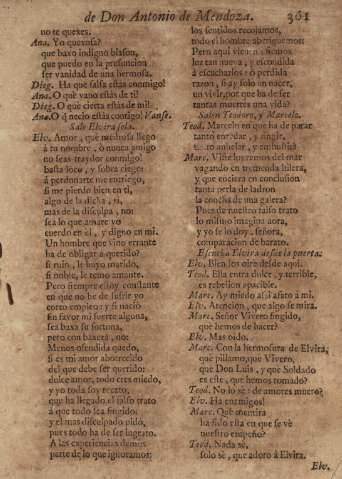 de Don Antonio de Mendoza. 361
no te quexes.
Ana. Yo quexosa?
que baxo indigno blason,
que puedo en la presuncion
ser vanidad de una hermosa.
Dieg. Ha que falsa estás conmigo!
Ana. O què vano estás de ti!
Dieg. O què cierta estás de mi!
Ana. O q̃ necio estás contigo! Vanse.
Sale Elvira sola.
Elv. Amor, que nechusa llego
à tu nombre, ò nunca amigo
no seas traydor conmigo!
basta loco, y sobra ciego:
à perdonarte me entriego,
si me pierdo bien en ti,
algo de la dicha, si,
mas de la disculpa, no:
sea lo que amare yo
cuerdo en èl, y digno en mi.
Un hombre que vino errante
ha de obligar à querido?
si ruin, le huyo marido,
si noble, le temo amante.
Pero siempre estoy constante
en que no he de sufrir yo
corto empleo; y si naciò
su favor mi suerte alguna,
sea baxa su fortuna,
pero con baxeza, no:
Menos ofendida quedo,
si es mi amor aborrecido
del que debe ser querido:
dulce amor, todo eres miedo,
y yo toda soy recato,
que ha llegado el falso trato
à que todo sea fingido:
y el mas disculpado pido,
pues todo ha de ser ingrato.
A las experiencias demos
parte de lo que ignoramos:
los sentidos recojamos,
todo el hombre abriguemos:
Pero aqui vienen; oìmos
luz tan nueva, y escondida
à escucharlos: ò perdida
razon, si ay solo un nacer,
un vivir, por que ha de ser
tantas muertes una vida?
Salen Teodoro, y Marcelo.
Teod. Marcelo en que ha de parar
tanto enredar, y fingir,
tanto anhelar, y embustir?
Marc. Viste los remos del mar
vagando en tremenda hilera,
y que encierra en conclusion
tanta perla de ladron
la concha de una galera?
Pues de nuestro falso trato
lo mismo imagina aora,
y yo se lo doy, señora,
comparacion de barato.
Escucha Elvira desde la puerta.
Elv. Bien los oìrè desde aqui.
Teod. Ella entra dulce, y terrible,
es rebelion apacible.
Marc. Ay miedo assi! asuto à mi.
Elv. Atencion, que algo se mira.
Marc. Señor Vivero fingido,
què hemos de hacer?
Elv. Mas oìdo.
Marc. Con la hermosura de Elvira,
què píllamo, que Vivero,
què Don Luis, y què Soldado
es este, què hemos tomado?
Teod. No lo sè: de amores muero?
Elv. Ha enemigos!
Marc. Què mentira
ha sido esta en que se vè
nuestro empeño?
Teod. Nada sè,
solo sè, que adoro à Elvira.
Elv.